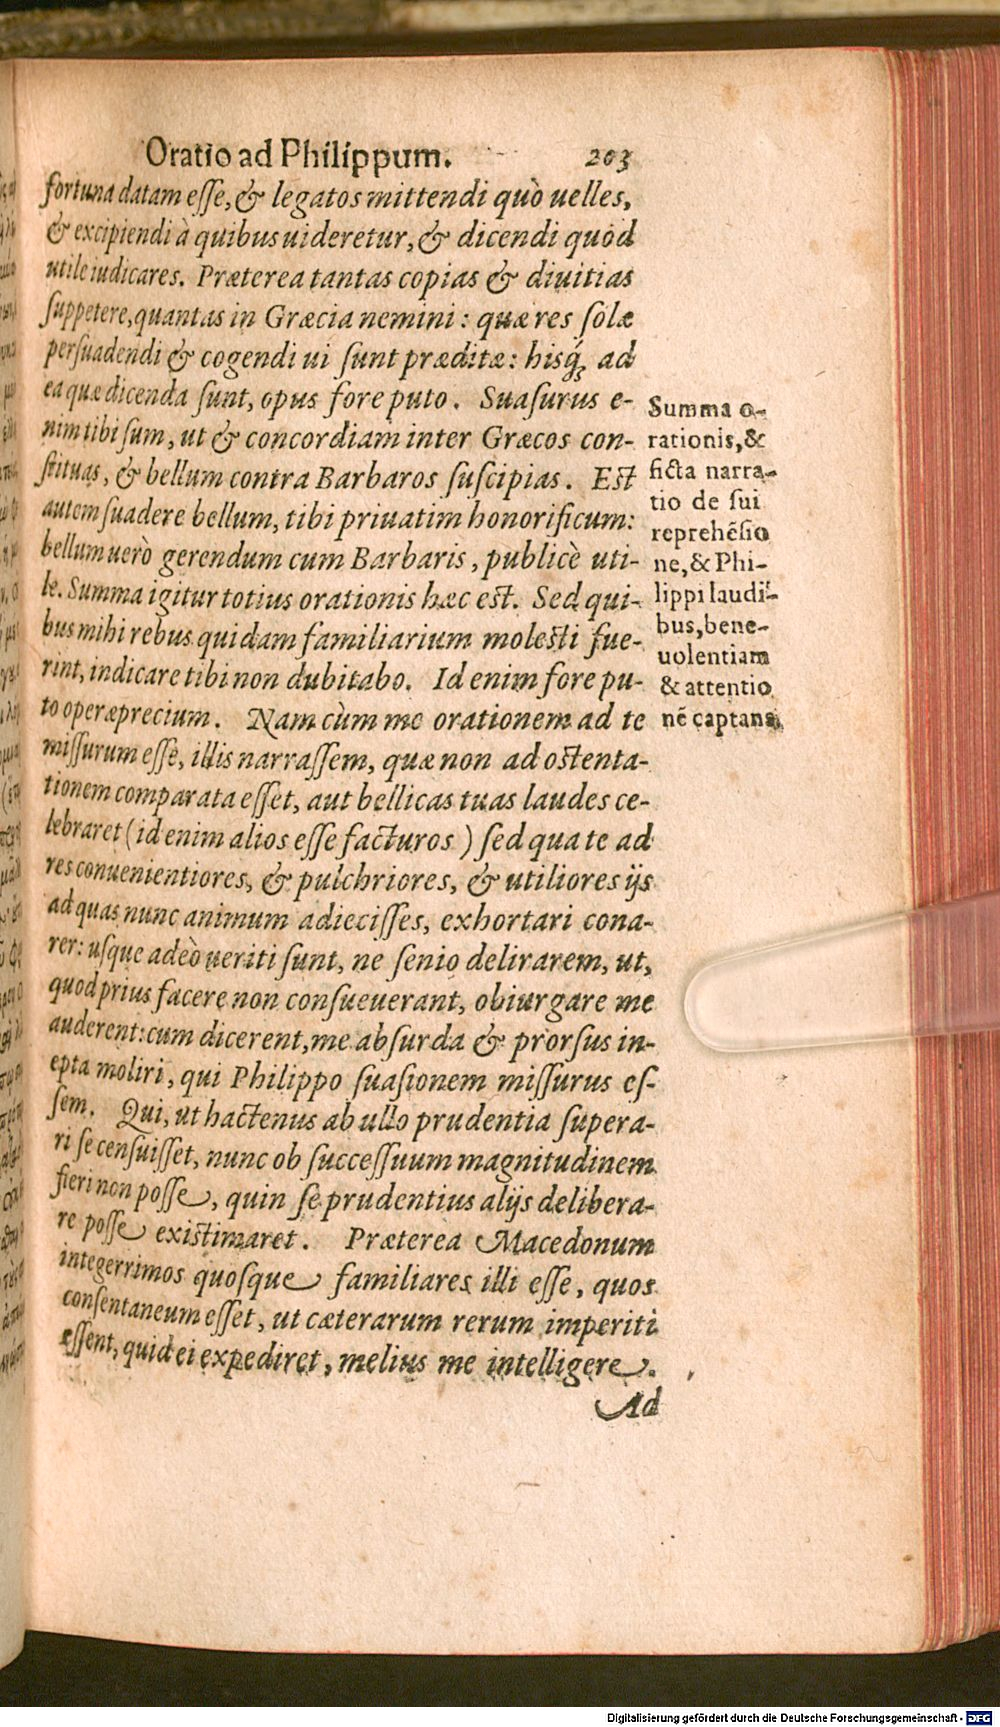 Oratio ad Philippum. 203
fortuna datam esse, & legatos mittendi quò uelles,
& excipiendi à quibus uideretur, & dicendi quòd
utile iudicares. Præterea tantas copias & diuitias
suppetere, quantas in Græcia nemini: quæ res solæ
persuadendi & cogendi ui sunt præditæ: hisq́; ad
ea quæ dicenda sunt, opus fore puto. Suasurus e-
nim tibi sum, ut & concordiam inter Græcos con-
stituas, & bellum contra Barbaros suscipias. Est
autem suadere bellum, tibi priuatim honorificum:
bellum uerò gerendum cum Barbaris, publicè uti-
le. Summa igitur totius orationis hæc est. Sed qui-
bus mihi rebus quidam familiarium molesti fue-
rint, indicare tibi non dubitabo. Id enim fore pu-
to operæprecium. Nam cùm me orationem ad te
missurum esse, illis narrassem, quæ non ad ostenta-
tionem comparata esset, aut bellicas tuas laudes ce-
lebraret (id enim alios esse facturos) sed qua te ad
res conuenientiores, & pulchriores, & utiliores ijs
ad quas nunc animum adiecisses, exhortari cona-
rer: usque adeò ueriti sunt, ne senio delirarem, ut,
quod prius facere non consueuerant, obiurgare me
auderent: cum dicerent, me absurda & prorsus in-
epta moliri, qui Philippo suasionem missurus es-
sem. Qui, ut hactenus ab ullo prudentia supera-
ri se censuisset, nunc ob successuum magnitudinem
fieri non posse, quin se prudentius alijs delibera-
re posse existimaret. Præterea Macedonum
integerrimos quosque familiares illi esse, quos
consentaneum esset, ut cæterarum rerum imperiti
essent, quid ei expediret, melius me intelligere.
Ad
Summa o-
rationis, &
ficta narra-
tio de sui
reprehẽsio
ne, & Phi-
lippi laudi-
bus, bene-
uolentiam
& attentio
nẽ captans
Digitalisierung gefördert durch die Deutsche Forschungsgemeinschaft - DFG